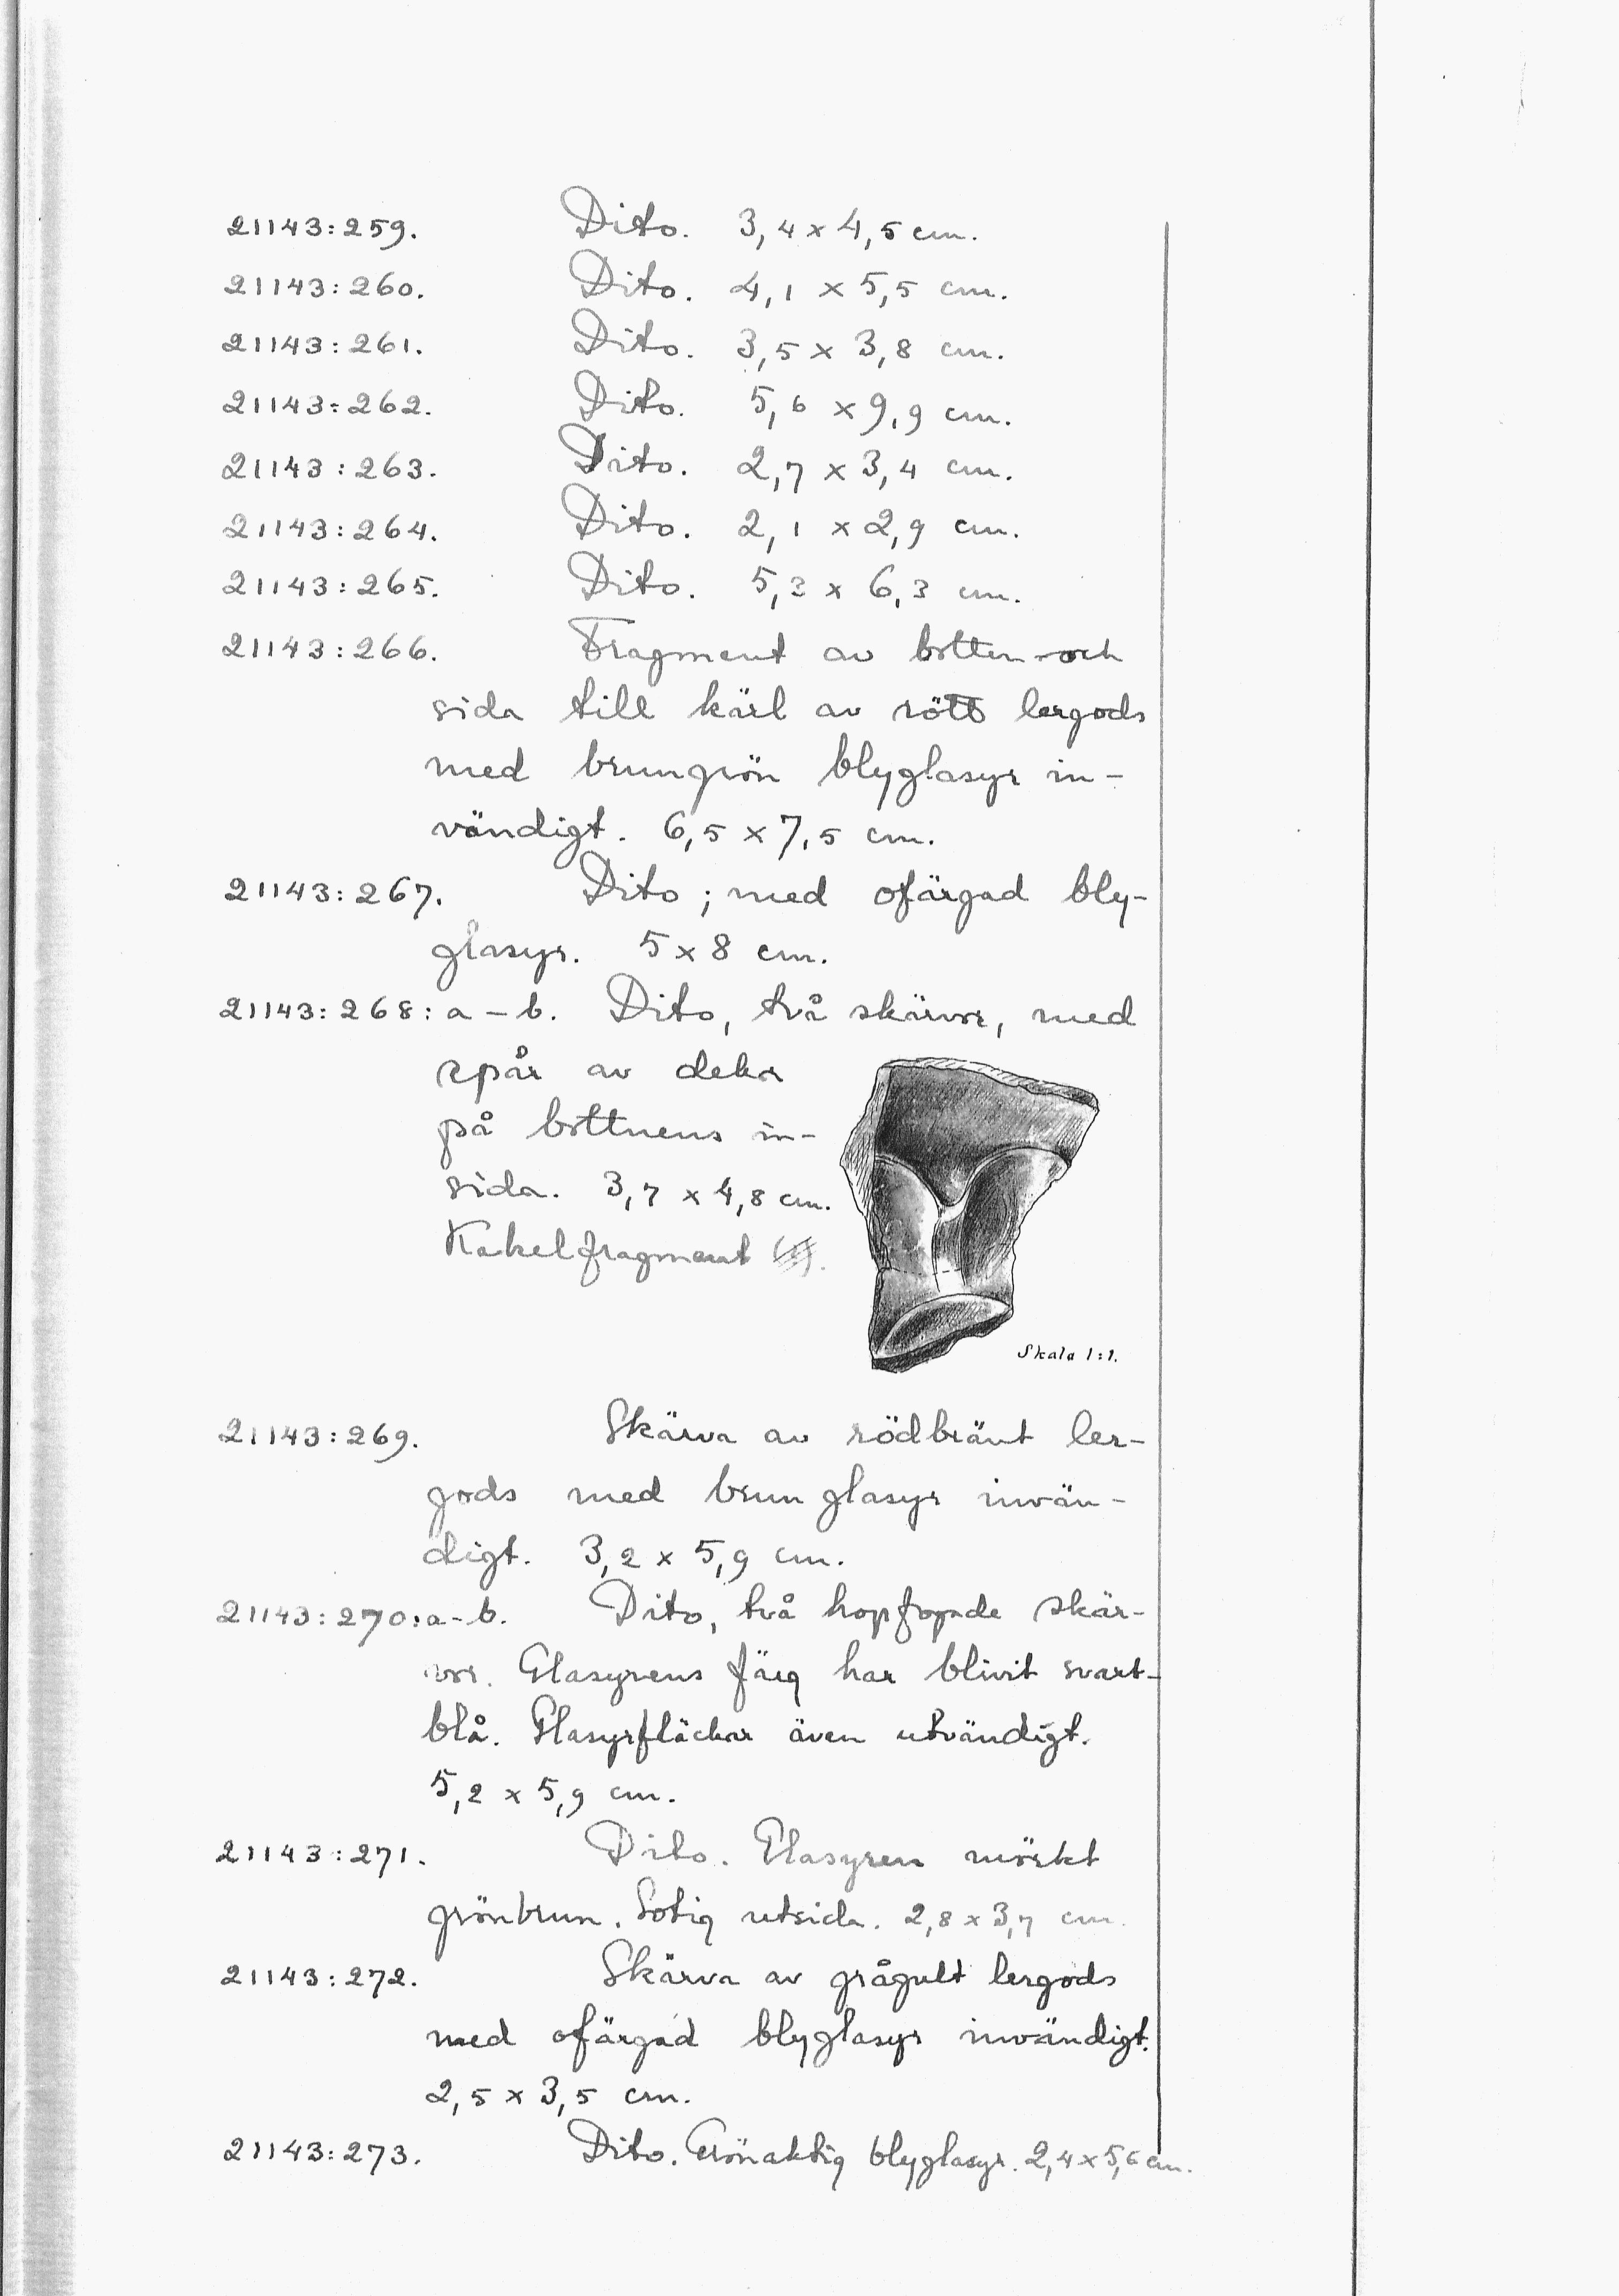 21143:259. Dito. 3,4 x 4,5 cm.
21143:260. Dito. 4,1 x 5,5 cm.
21143:261. Dito. 3,5 x 3,8 cm.
21143:262. Dito. 5,6 x 9,9 cm.
21143:263. Dito. 2,7 x 3,4 cm.
21143:264. Dito. 2,1 x 2,9 cm.
21143:265. Dito. 5,3 x 6,3 cm.
21143:266. Fragment av botten- och
sida till kärl av rött lergods
med brungrön blyglasyr in-
vändigt. 6,5 x 7,5 cm.
21143:267. Dito; med ofärgad bly-
glasyr. 5 x 8 cm.
21143:268:a-b. Dito, två skärvor, med
spår av dekor
på bottnens in-
sida. 3,7 x 4,8 cm.
Kakelfragment
Skala 1:1.
21143:269. Skärva av rödbränt ler-
gods med brun glasyr invän-
digt. 3,2 x 5,9 cm.
21143:270:a-b. Dito, två hopfogade skär-
vor. Glasyrens färg har blivit svart-
blå. Glasyrfläckar även utvändigt.
5,2 x 5,9 cm.
21143:271. Dito. Glasyren mörkt
grönbrun. Sotig utsida. 2,8 x 3,7 cm.
21143:272. Skärva av grågult lergods
med ofärgad blyglasyr invändigt.
2,5 x 3,5 cm.
21143:273. Dito. Grönaktig blyglasyr. 2,4 x 5,6 cm.